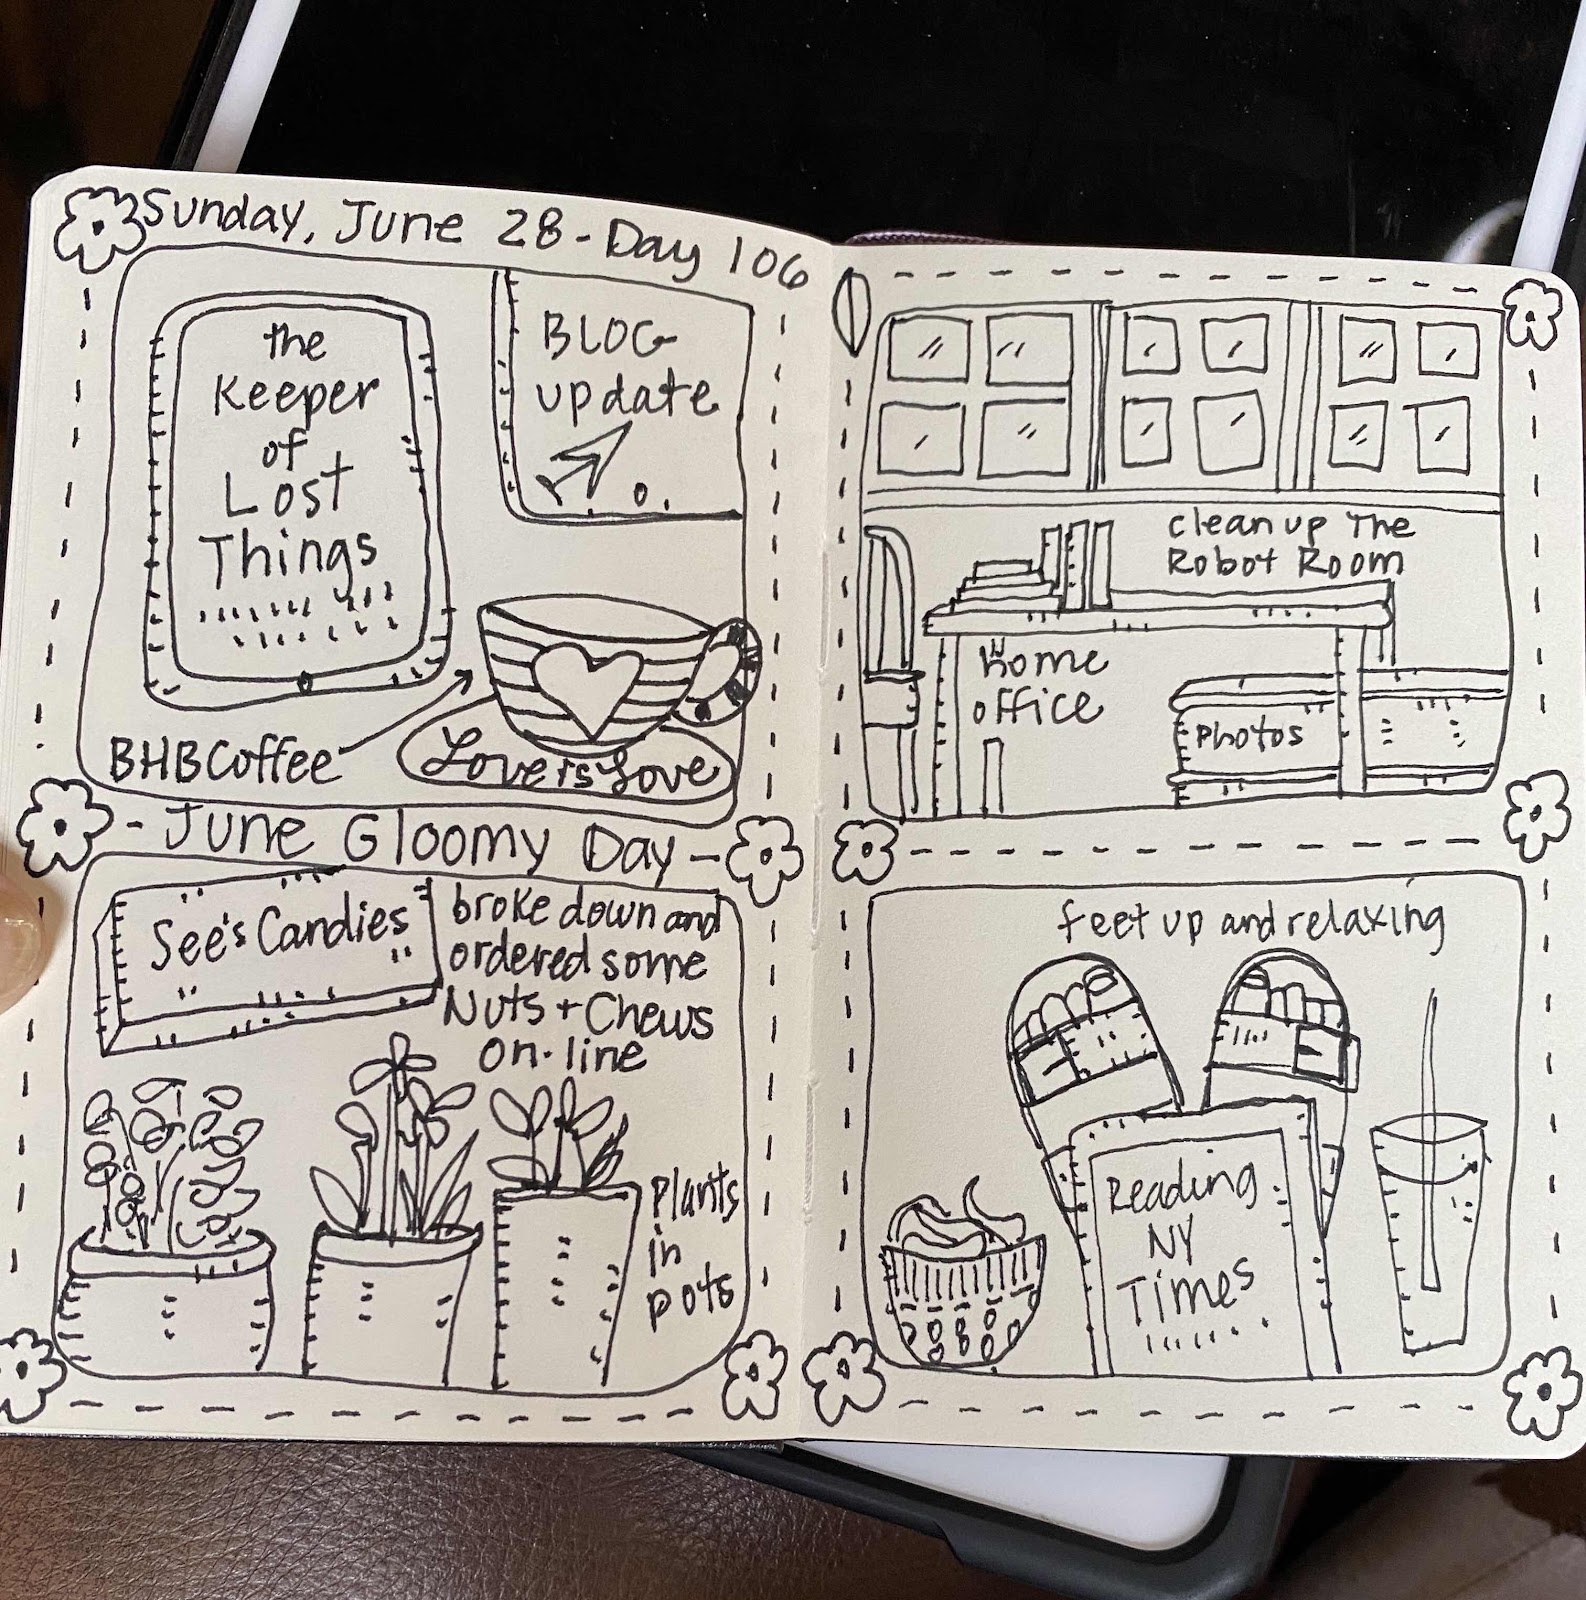 Sunday, June 28 - Day 106
the
Keeper
of
Lost
Things
BLOG
update
BHBCoffee
Love is Love
- June Gloomy Day -
See's Candies
broke down and
ordered some
Nuts + Chews
on-line
Plants
in
pots
clean up The
Robot Room
Home
office
Photos
feet up and relaxing
Reading
NY
Times